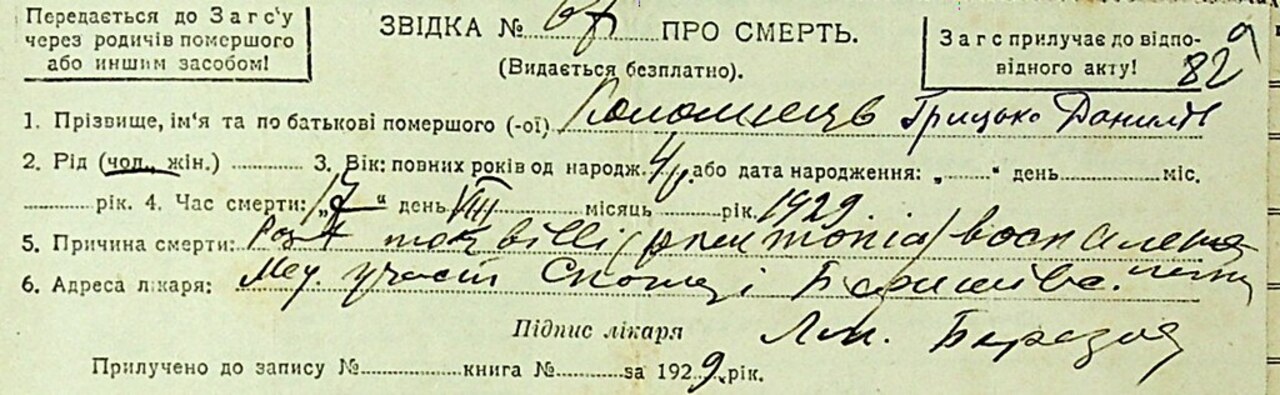 Передається до Загс'у
через родичів помершого
або иншим засобом!
ЗВІДКА № ПРО СМЕРТЬ.
(Видається безплатно).
Загс прилучає до відпо-
відного акту! 82
1. Прізвище, ім'я та по батькові помершого (-ої) Коломиєць Грицько Данилів
2. Рід (чол., жін.) 3. Вік: повних років од народж. 4 або дата народження: „ " день міс.
рік. 4. Час смерти: „17" день VIII місяць рік. 1929.
5. Причина смерти: Post morbilli (pneumonia) воспаление
6. Адреса лікаря: Мед. участ
Підпис лікаря
Прилучено до запису № книга № за 1929 рік.